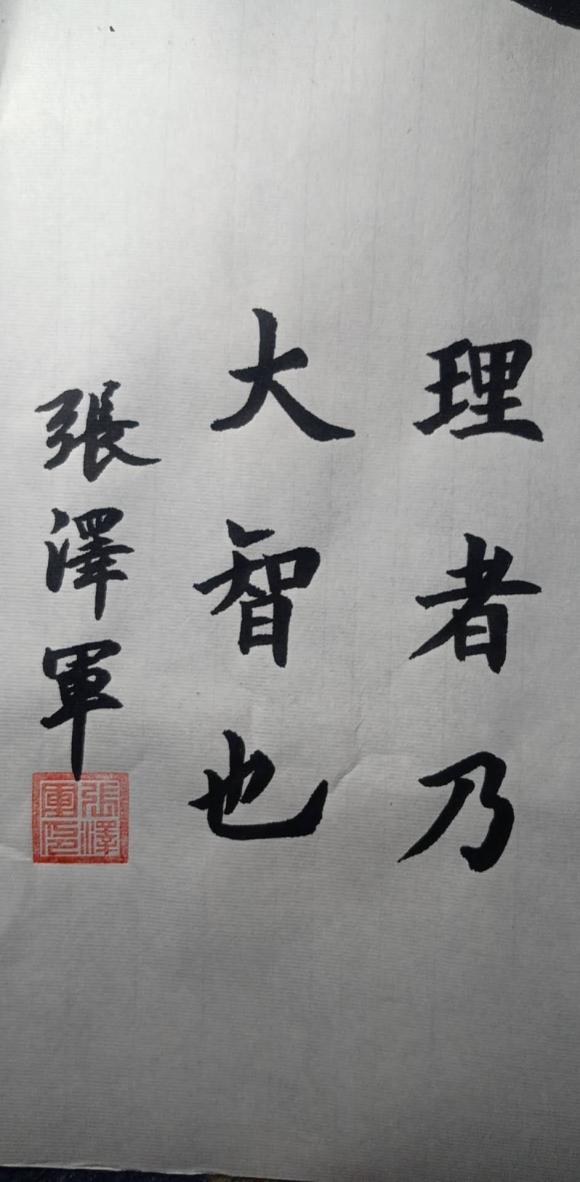 理者乃
大智也
張澤軍
張澤軍印